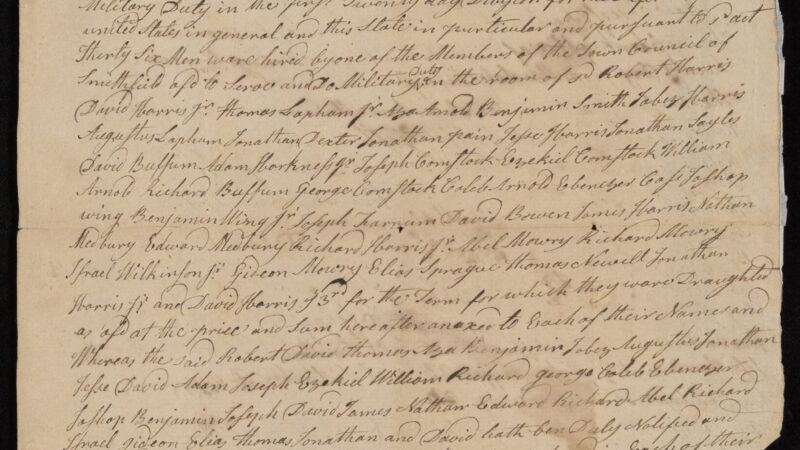 Military Duty in the first Twenty day Division for the
united States in general and this State in particular and pursuant to sd act
Thirty Six Men ware hired by one of the Members of the Town Council of
Smithfield afsd to Serve and Do Military Duty in the room of sd Robert Harris
David Harris Jr. Thomas Lapham Jr. Aza Arnold Benjamin Smith Jabez Harris
Augustus Lapham Jonathan Dexter Jonathan pain Jesse Harris Jonathan Sayles
David Buffum Adam Harkness Jr. Joseph Comstock Ezekiel Comstock William
Arnold Richard Buffum George Comstock Caleb Arnold Ebenezer Cass Joshop
wing Benjamin Wing Jr. Joseph Farnum David Bowen James Harris Nathan
Medbury Edward Medbury Richard Harris Jr. Abel Mowry Richard Mowry
Israel Wilkinson Jr. Gideon Mowry Elias Sprague Thomas Newell Jonathan
Harris Jr. and David Harris ye 3rd for the Term for which they ware Draughted
as afsd at the price and Sum hereafter anexed to Each of their Names and
Whereas the said Robert David Thomas Aza Benjamin Jabez Augustus Jonathan
Jesse David Adam Joseph Ezekiel William Richard george Caleb Ebenezer
Joshop Benjamin Joseph David James Nathan Edward Richard Abel Richard
Israel gideon Elias Thomas Jonathan and David hath ben Duly Notified and
Each of their